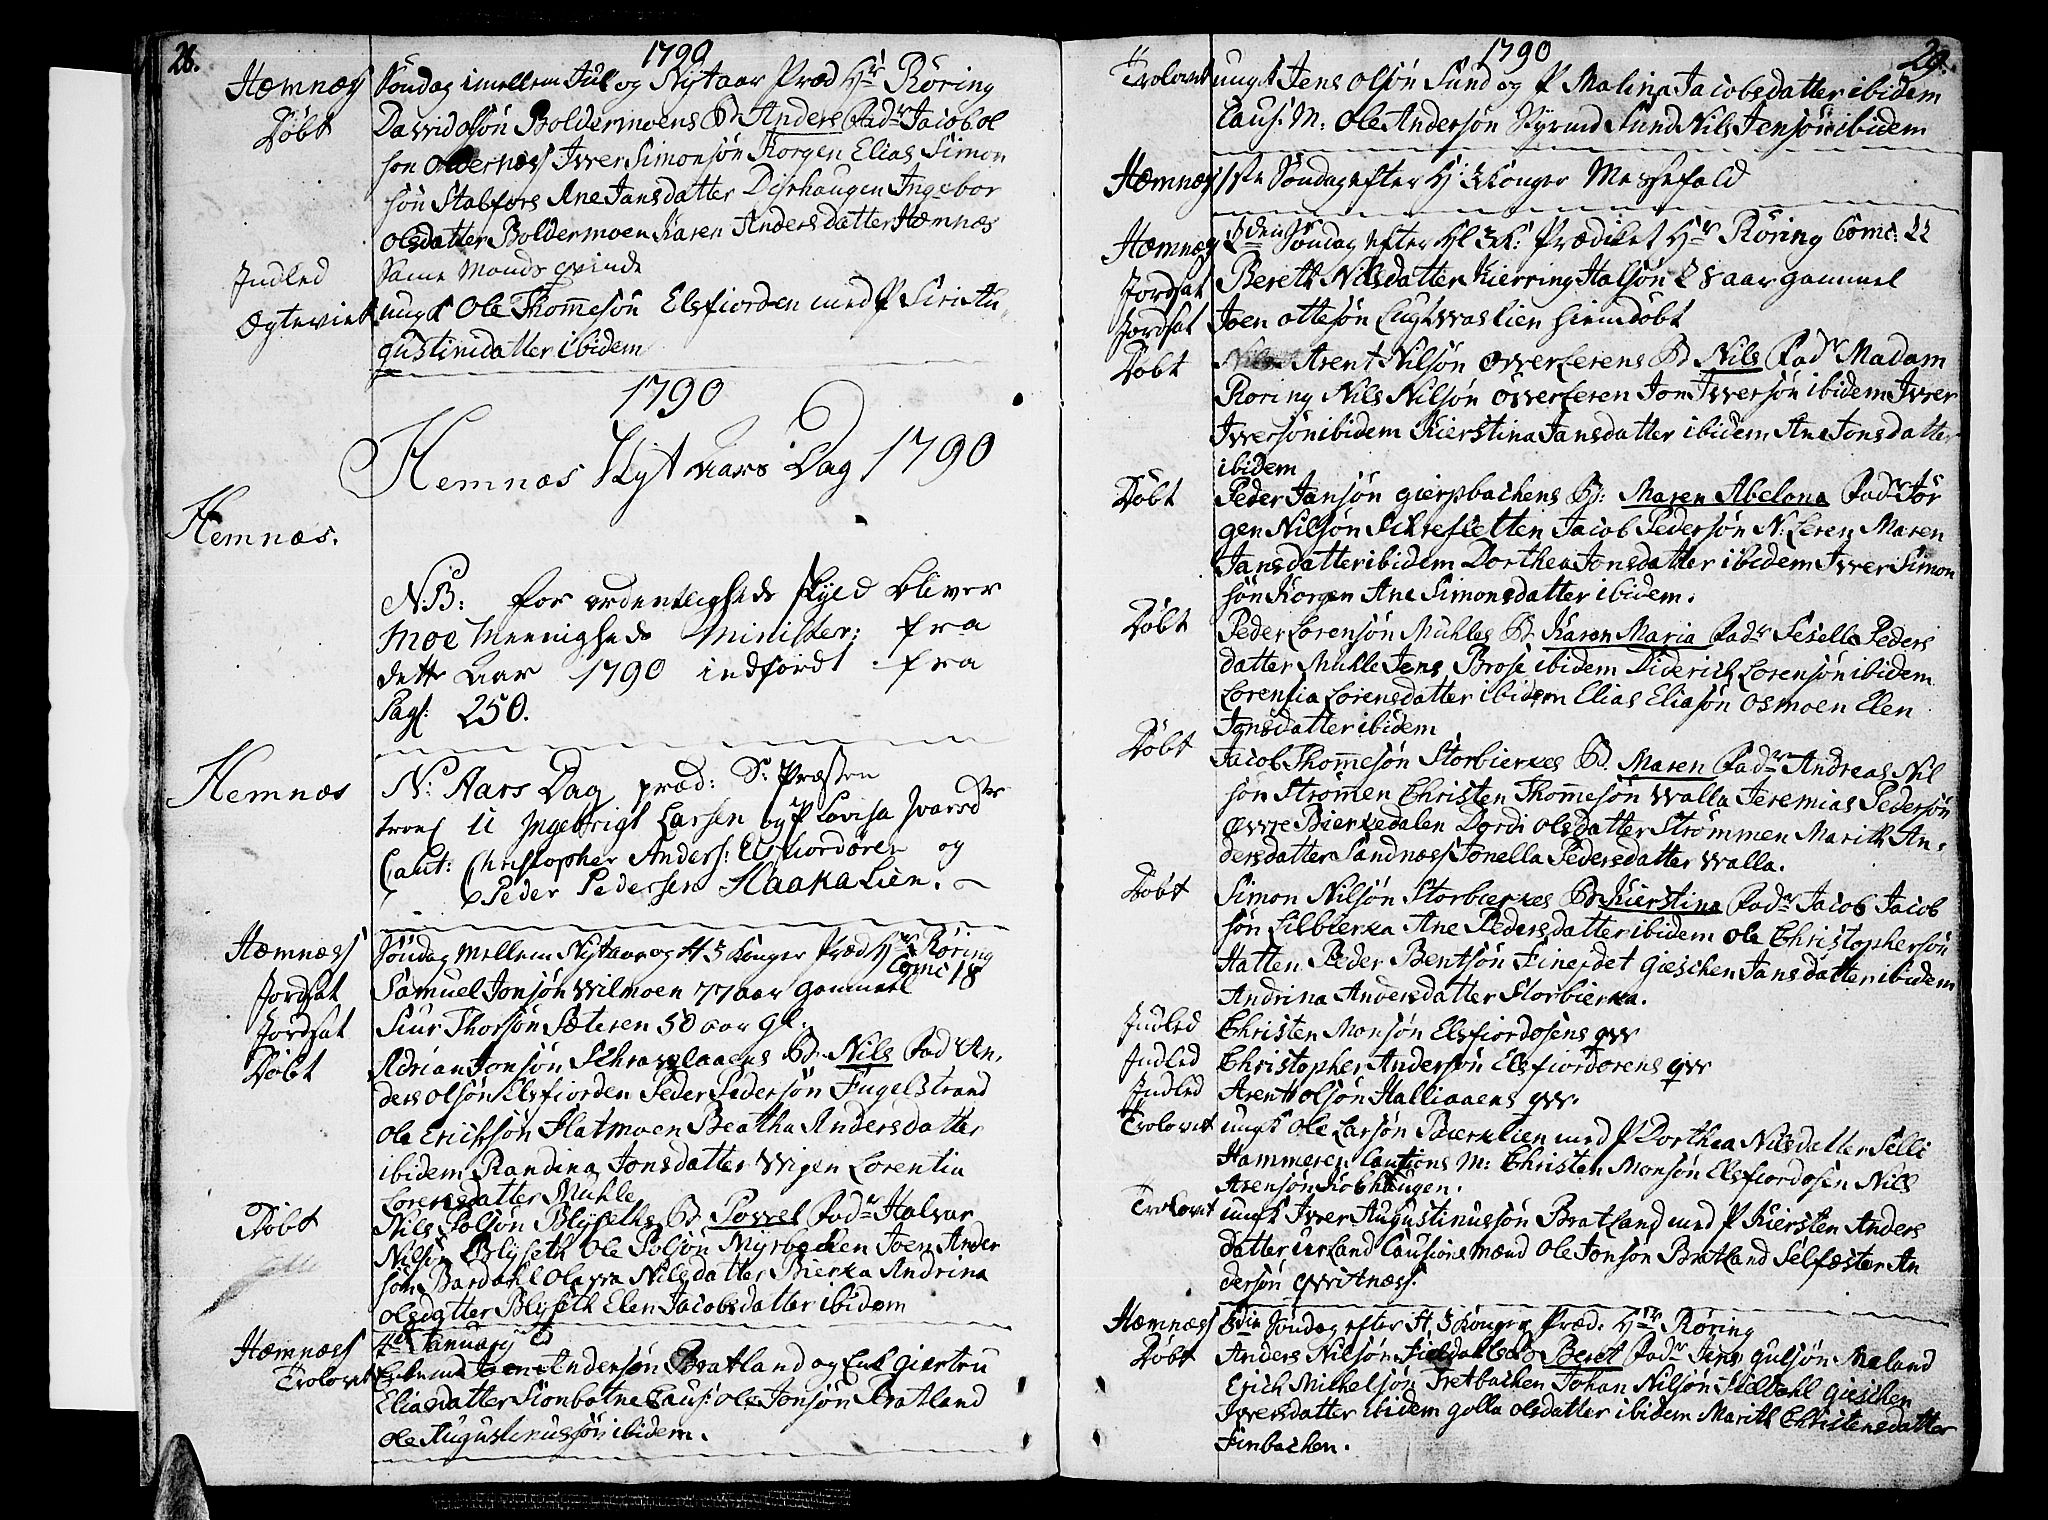 28.
1790
Hæmnæs Søndag imellem Jul og Nytaar Præd Hr Røring
Døbt David olsøn Boldermoens B. Anders Fadr Jacob ol
søn oldernæss Iver Simonsøn Korgen Elias Simon
søn Stabfors Ane Jansdatter Dirhaugen Ingebor
olsdatter Boldermoen Karen Andersdatter Hæmnæs
Indled Same Mands qvinde
Ægteviet ungk Ole Thommesøn Elsfiorden med P Siri Au-
gustinidatter ibidem
1790
Hemnæs Nyt Aars Dag 1790
Hemnæs.
NB: for ordentligheds skyld bliver
Moe Meenigheds Minister: fra
dette Aar 1790 indført fra
Pag: 250.
Hemnæs N: Aars Dag præd: Sr Præsten
trol: u Ingebrigt Larsen og P Lovisa Ivarsdr
Caut: Christopher Anders: Elsfiordøren og
Peder Pedersen Haakalien.
Hæmnæss Søndag mellem Nytaar og H 3 Konger Præd Hr Røring
Comc 18
Jordsat Samuel Jonsøn Wilmoen 77 aar gammel
Jordsat Siur Thorsøn Sæteren 50 aar gl.
Døbt Adrian Jonsøn Schravlaaens B. Nils Fadr An,
ders olsøn Elsfiorden Peder Pedersøn Fugelstrand
Ole Erichsøn Flatmoen Beatha Andersdatter
ibidem Randina Jonsdatter Wigen Lorentia
Lorensdatter Muhle
Døbt Nils Polsøn Blyseths B. Povel Fadr Halvar
Nilsøn Blyseth Ole Polsøn Myrbachen Joen Ander
søn Bardahl Olava Nilsdatter Bierka Andrina
Olsdatter Blyseth Elen Jacobsdatter ibidem
Hæmnæss January
Trolovet Joen Andersøn Bratland og Enk Giertru
Eliasdatter Sionbotne Caus: Ole Jonsøn Bratland
Ole Augustinussøn ibidem.
1790
29.
Trolovet ungk Jens Olsøn Sund og P Malina Jacobsdatter ibidem
Caus. M: Ole Andersøn Sund Nils Jensøn ibidem
Hæmnæs 1ste Søndag efter H: 3 Konger Messefald
Hæmnæs 2den Søndag efter Hl 3 K: Prædiket Hr Røring Comc: 22
Jordsat Bereth Nilsdatter Kierring Halsøn 28 aar gammel
Jordsat Joen ottesøn Lugtvaslien hiemdøbt
Døbt Arent Nilsøn overlerens B Nils Fadr Madam
Røring Nils Nilsøn overleren Jon Iversøn ibidem Iver
Iversøn ibidem Kierstina Jansdatter ibidem Ane Jonsdatter
ibidem
Døbt Peder Jansøn gierpbachens B: Maren Abelona Fadr Jør
gen Nilsøn Schrefletten Jacob Pedersøn N: Leren Maren
Jansdatter ibidem Dorthea Jonsdatter ibidem Iver Simon
søn Korgen Ane Simonsdatter ibidem.
Døbt Peder Lorensøn Muhles B. Karen Maria Fadr Sesella Peders
datter Muhle Jens Brose ibidem Diderich Lorensøn ibidem
Lorensia Lorensdatter ibidem Elias Eliasøn Osmoen Elen
Jonsdatter ibidem
Døbt Jacob Thommesøn Storbierkes B. Maren Fadr Andreas Nil
søn Strømen Christen Thommesøn Walla Jeremias Pedersøn
øvre Bierkedalen Dordi olsdatter Strømmen Marith An,
dersdatter Sandnæss Jonella Pedersdatter Walla.
Døbt Simon Nilsøn Storbierkes B Kierstina Fadr Jacob Jacob
søn Lilbierka Ane Pedersdatter ibidem Ole Christophersøn
Hatten Peder Bentsøn Gieschen Jansdatter ibidem
Andrina Andersdatter Storbierka.
Indled Christen Monsøn Elsfiordosens qvr
Indled Christopher Andersøn Elsfiordørens qvr
Indled Arent olsøn Halliaaens qvr.
Trolovet ungk Ole Larsøn Baerklien med P Dorthea Nilsdatter Selli
Hammeren Cautions M: Christen Monsøn Elsfiordosen Nils
Arensøn Kobhaugen.
Trolovet ungk Iver Augustinussøn Bratland med P Kiersten Anders
datter Lurland Causions mænd Ole Jonsøn Bratland Selfæster An
dersøn qvitnæss.
Hæmnæss 3die Søndag efter H 3 Konger Præd. Hr Røring
Døbt Anders Nilsøn Fieldahls B Beret Fadr Jens gulsøn Meland
Erich Michelsøn Tretbachen Johan Nilsøn Fieldahl Gieschen
Iversdatter ibidem golla olsdatter ibidem Marith Christensdatter
Finbachen.